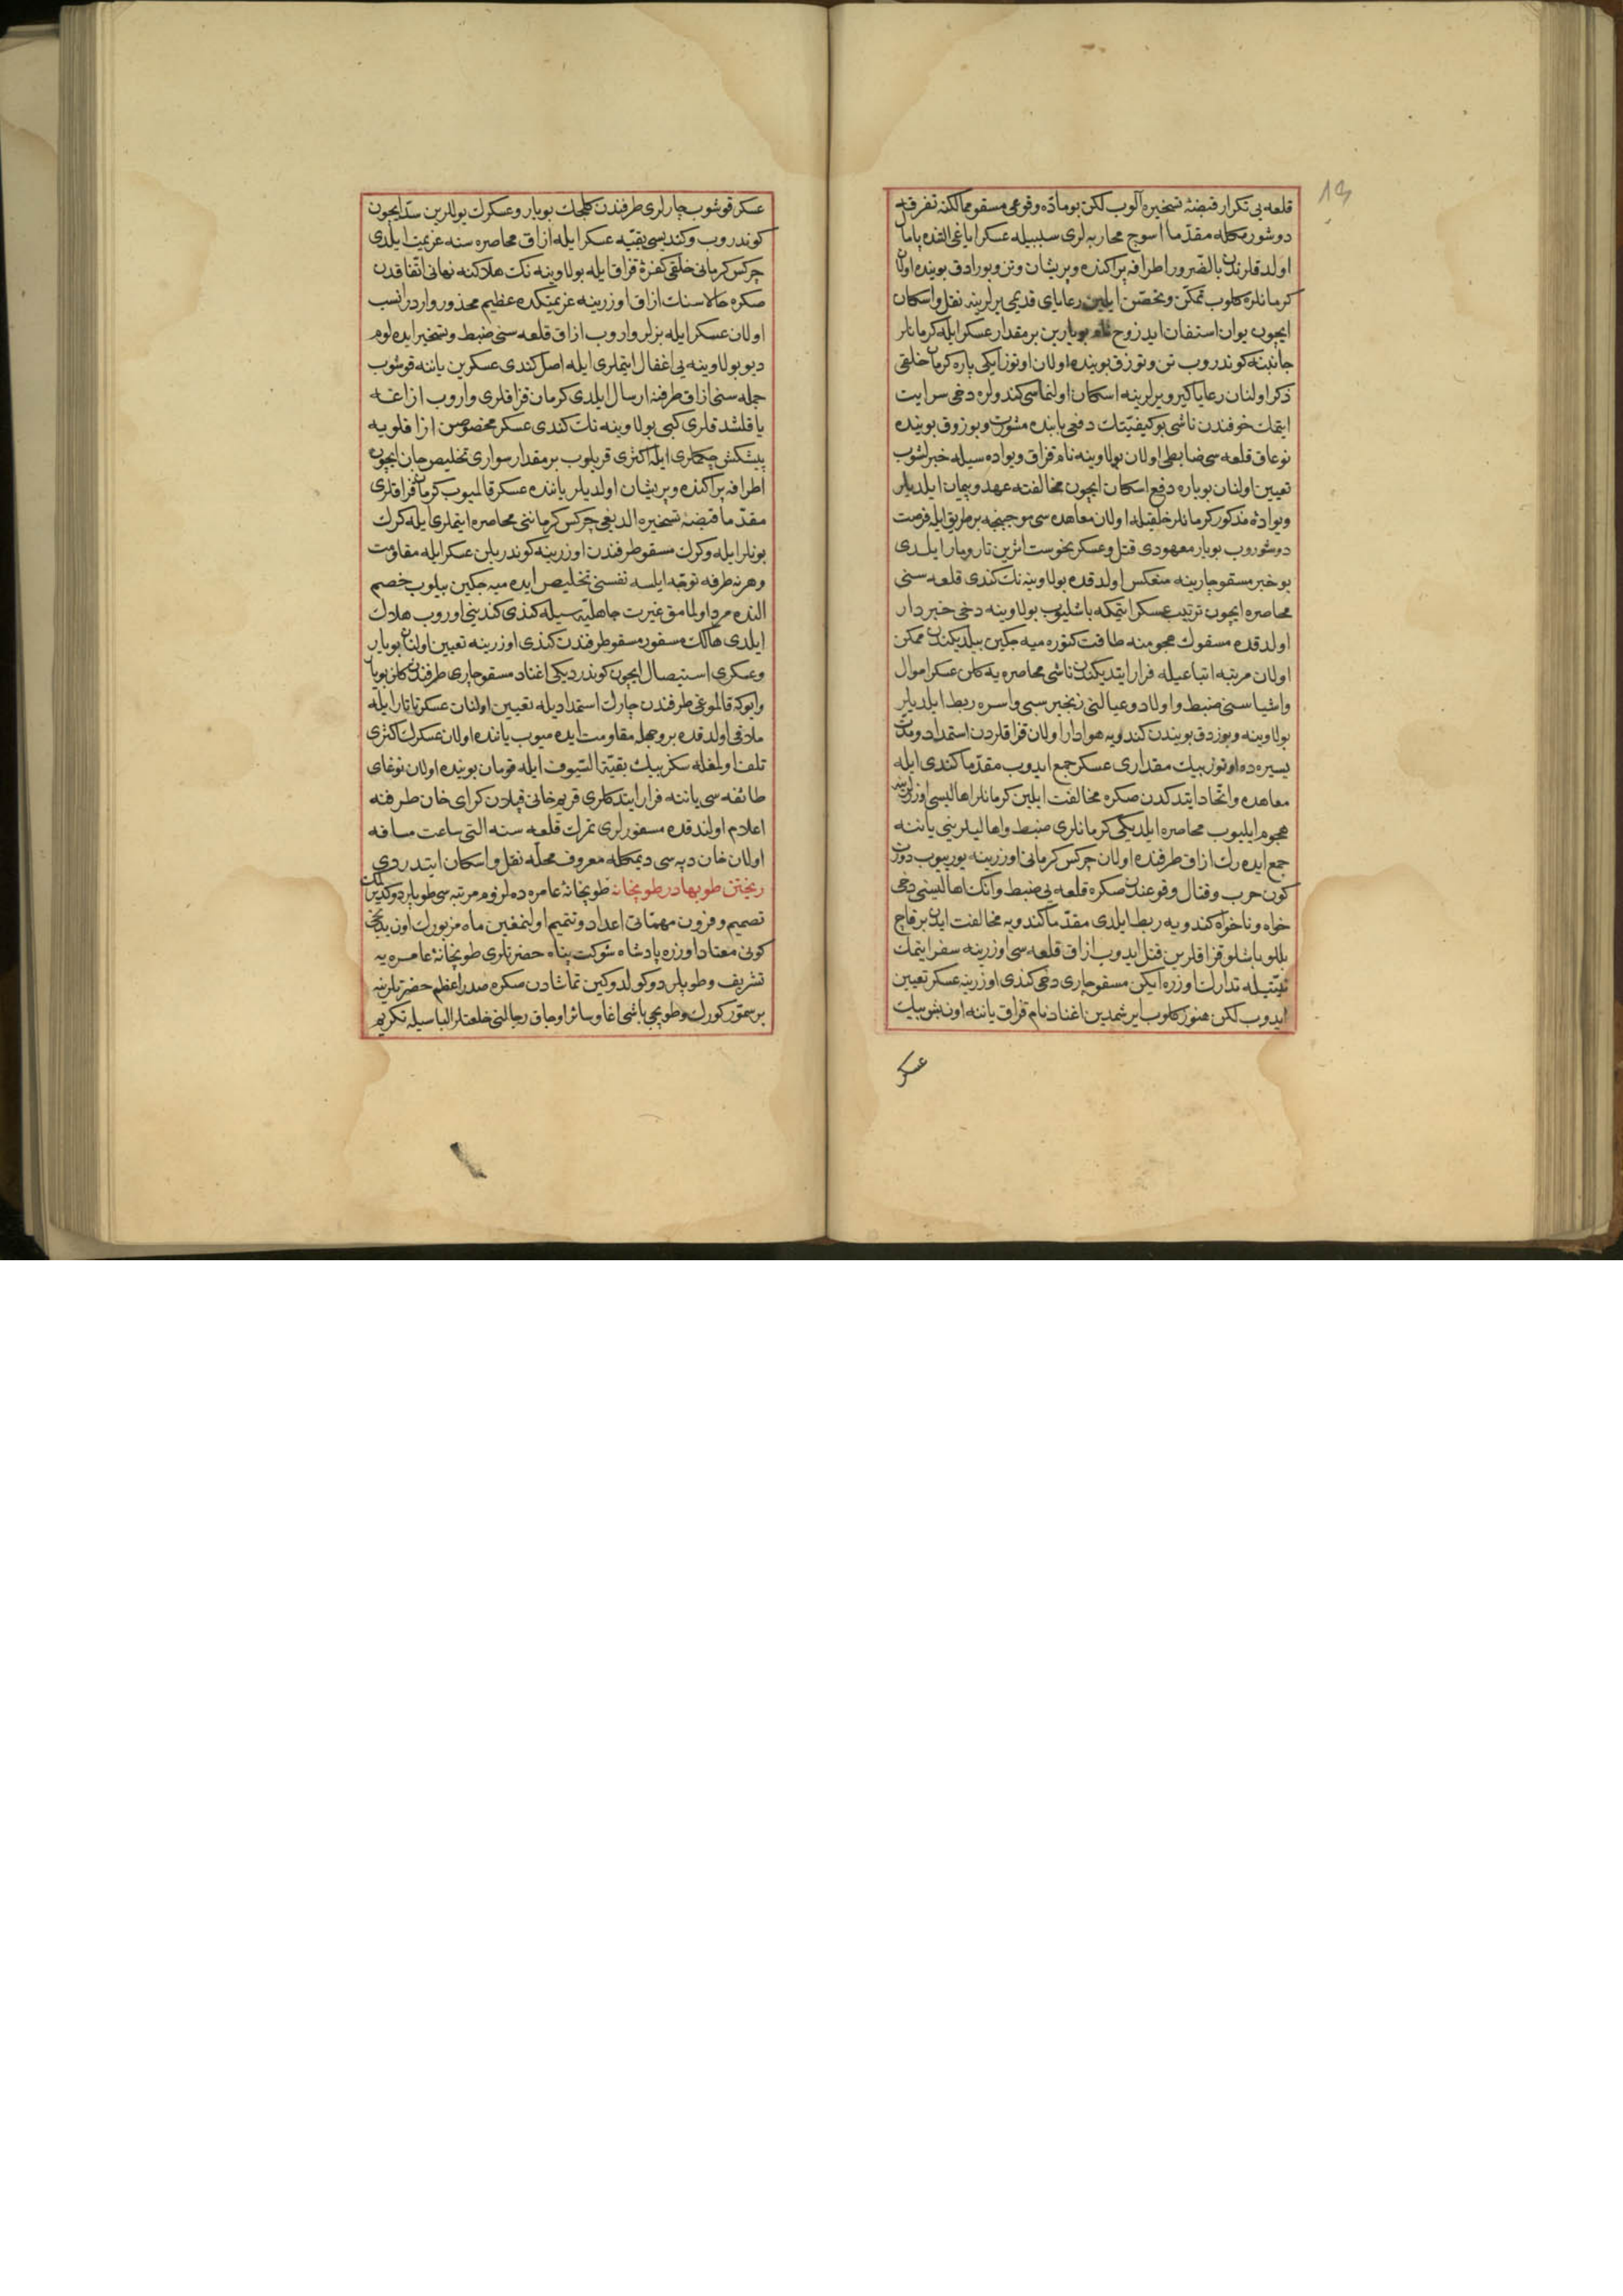 قلعه یی تکرار قبضهٔ تسخیره آلوب لکن بو ماده وقوعی مسقو ممالکنه تفرقه
دوشورمکله مقدما اسوج محاربه لری سببیله عسکر ایاغی التنده پامال
اولدقلرندن بالضرور اطرافه پراکنده و پریشان وتن وبورادق بوینده اولان
کرمانلره کلوب تمکن وتحصن ایلین رعایای قدیمی یرلرینه نقل واسکان
ایچون یوان استفان ایدزوح نام بویارین بر مقدار عسکر ایله کرمانلر
جانبنه کوندروب تن وتوزق بوینده اولان اوتوز ایکی پاره کرمان خلقی
ذکر اولنان رعایا کیرو یرلرینه اسکان اولنماسی کندولره دخی سرایت
ایتمک خوفندن ناشی بو کیفیتک دفعی بابنده مشورت وبوزوق بوینده
نوعاق قلعه سی ضابطی اولان بولاوینه نام قزاق وبواده سیله خبرلشوب
تعیین اولنان بویاره دفع اسکان ایچون مخالفته عهد وپیمان ایلدیلر
وبوادهٔ مذکور کرمانلر خلقیله اولان معاهده سی موجبنجه بر طریق ایله فرصت
دوشوروب بویار معهودی قتل وعسکر نحوست اثرین تارومار ایلدی
بو خبر مسقو چارینه منعکس اولدقده بولاوینه نک کندی قلعه سنی
محاصره ایچون ترتیب عسکر ایتمکه باشلیوب بولاوینه دخی خبردار
اولدقده مسقونک هجومنه طاقت کتوره میه جکین بیلدیکندن ممکن
اولان مرتبه اتباعیله فرار ایتدیکندن ناشی محاصره یه کلن عسکر اموال
واشیاسنی ضبط واولاد وعیالنی زنجیر سبی واسره ربط ایلدیلر
بولاوینه وبوزدق بویندن کندویه هوادار اولان قزاقلردن استمداد ومدت
یسیره ده اوتوز بیک مقداری عسکر جمع ایدوب مقدما کندی ایله
معاهده واتحاد ایتدکدن صکره مخالفت ایلین کرمانلر اهالیسی اوزرلرینه
هجوم ایلیوب محاصره ایلدیکی کرمانلری ضبط واهالیلرینی یاننه
جمع ایده رک ازاق طرفنده اولان چرکس کرمانی اوزرینه یوریوب دورت
کون حرب وقتال وقوعندن صکره قلعه یی ضبط وانک اهالیسنی دخی
خواه وناخواه کندویه ربط ایلدی مقدما کندویه مخالفت ایدن برقاچ
بللو باشلو قزاقلرین قتل ایدوب ازاق قلعه سی اوزرینه سفر ایتمک
نیتیله تدارک اوزره ایکن مسقو چاری دخی کندی اوزرینه عسکر تعیین
ایدوب لکن هنوز کلوب ایرشمدین اغناد نام قزاق یاننه اون بش بیک
عسکر
عسکر قوشوب چارلری طرفندن کله جک بویار وعسکرک یوللرین سد ایچون
کوندروب وکندیسی بقیه عسکر ایله ازاق محاصره سنه عزیمت ایلدی
چرکس کرمانی خلقی کفرهٔ قزاق ایله بولاوینه نک هلاکنه نهانی اتفاقدن
صکره حالا سنک ازاق اوزرینه عزیمتکده عظیم محذور واردر انسب
اولان عسکر ایله بزلر واروب ازاق قلعه سنی ضبط وتسخیر ایده لوم
دیو بولاوینه یی اغفال ایتملری ایله اصل کندی عسکرین یاننه قوشوب
جمله سنی ازاق طرفنه ارسال ایلدی کرمان قزاقلری واروب ازاغه
یاقلشدقلری کبی بولاوینه نک کندی عسکر مخصوصن ازاقلویه
پیشکش چکملری ایله اکثری قریلوب بر مقدار سواری تخلیص جان ایچون
اطرافه پراکنده وپریشان اولدیلر یاننده عسکر قالمیوب کرمان قزاقلری
مقدما قبضهٔ تسخیره الدیغی چرکس کرماننی محاصره ایتملری ایله کرک
بونلر ایله وکرک مسقو طرفندن اوزرینه کوندریلن عسکر ایله مقاومت
وهر نه طرفه توجه ایلسه نفسنی تخلیص ایده میه جکین بیلوب خصم
النده مرد اولمامق غیرت جاهلیه سیله کندی کندینی اوروب هلاک
ایلدی هالک مسفور مسقو طرفندن کندی اوزرینه تعیین اولنان بویار
وعسکری استیصال ایچون کوندردیکی اغناد مسقو چاری طرفندن کلن بویار
وایوکه قالموغی طرفندن چارک استمدادیله تعیین اولنان عسکر تاتار ایله
ملاقی اولدقده بر وجهله مقاومت ایده میوب یاننده اولان عسکرک اکثری
تلف اولمغله سکز بیک بقیة السیوف ایله قوبان بوینده اولان نوغای
طائفه سی یاننه فرار ایتدکلری قریم خانی قپلان کرای خان طرفنه
اعلام اولندقده مسفورلری تمرک قلعه سنه التی ساعت مسافه
اولان خان دپه سی دیمکله معروف محله نقل واسکان ایتدردی
ریختن طوبها در طوبخانه طوبخانهٔ عامره ده لزوم مرتبه سی طوپلر دوکدیرلمک
تصمیم وفزون مهماتی اعداد وتتمیم اولنمغین ماه مزبورک اون یدنجی
کونی معتاد اوزره پادشاه شوکت پناه حضرتلری طوبخانهٔ عامره یه
تشریف وطوپلر دوکولدوکین تماشادن صکره صدر اعظم حضرتلرینه
بر سمور کورک وطوبجی باشی اغا وسائر اوجاق رجالنی خلعتلر الباسیله تکریم